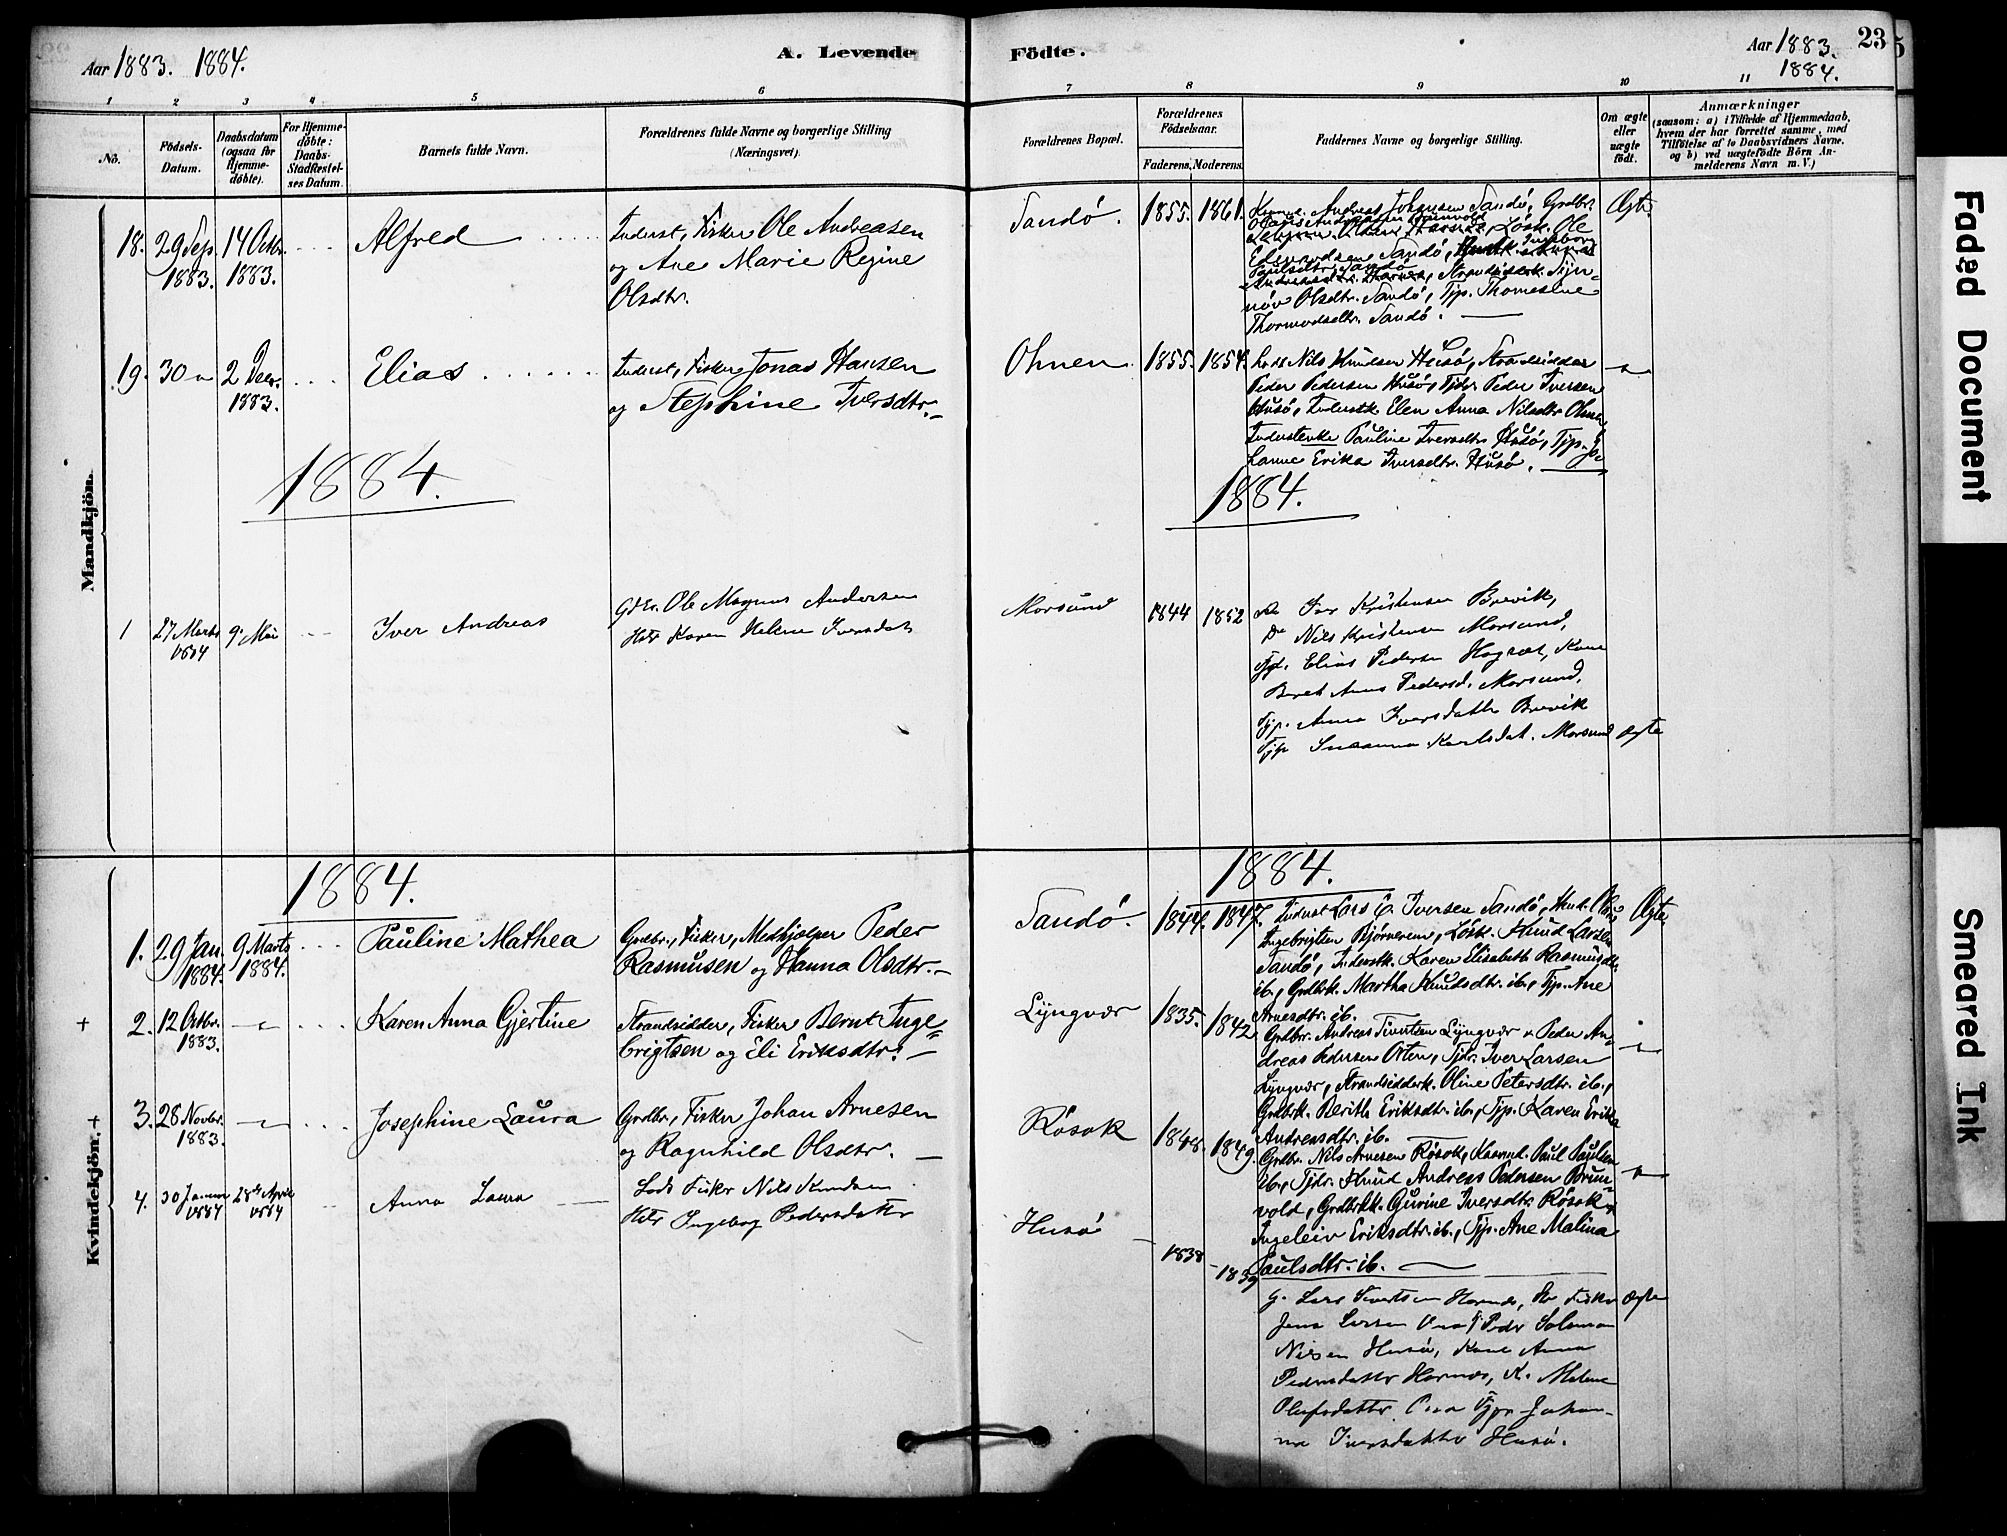 Aar 1883. 1884.
A. Levende
Födte.
Aar 1883. 23
1884.
1 2 3 4 5 6
7 8 9 10 11
No.
Födsels-
Datum.
Daabsdatum
(ogsaa for
Hjemme-
döbte).
For Hjemme-
döbte:
Daabs-
Stadfæstel-
ses Datum.
Barnets fulde Navn.
Forældrenes fulde Navne og borgerlige Stilling
(Næringsvei).
Forældrenes Bopæl.
Forældrenes
Födselsaar.
Faderens. Moderens.
Faddernes Navne og borgerlige Stilling.
Om ægte
eller
uægte
födt.
Anmærkninger
(saasom: a) i Tilfælde af Hjemmedaab,
hvem der har forrettet samme, med
Tilföielse af to Daabsvidners Navne,
og b) ved uægtefödte Börn An-
melderens Navn m. V.)
Mandkjön.
18. 29 Sep. 1883. 14 Octbr. 1883. Alfred
Inderst, Fisker Ole Andreasen
og Ane Marie Regine
Olsdtr.
Sandö. 1855. 1861.
Andreas Johansen Sandö, Grdbr.
Lösk. Ole
Edvardsen Sandö,
Paulsdtr. Sandö
Strandsidderk. Syn-
növ Olsdtr. Sandö, Tjp. Thomasine
Thormodsdtr. Sandö.
Ægte
19. 30 " 2 Decr. 1883. Elias
Inderst, Fisker Jonas Hansen
og Stephine Iversdtr.
Ohnen 1855. 1854.
Lods Nils Knudsen Husö, Strandsidder
Peder Pedersen Husö, Tjdr. Peder Iversen
Husö, Inderstk. Elen Anna Nilsdtr. Ohnen
Inderstenke Pauline Iversdtr. Husö, Tjp. Jo-
hanne Erika Iversdtr. Husö.
1884.
1884.
1 27 Marts 1884 9. Mai Iver Andreas
Gdbr. Ole Magnus Andersen
Hstr Karen Helene Iversdat
Morsund 1844 1852
Iver Kristensen Brevik,
Do Nils Kristensen Morsund,
Elias Pedersen Kone
Beret Anna Pedersd. Morsund,
Tjp. Anna Iversdatter Brevik
Tjp Susanna Karlsdat. Morsund ægte
Kvindekjön. +
1884.
1884.
1. 29 Jan. 1884. 9 Marts 1884. Pauline Mathea
Grdbr., Fisker, Medhjælper Peder
Rasmusen og Hanna Olsdtr.
Sandö. 1844. 1847.
Inderst Lars E. Iversen Sandö,
Ingebrigtsen Björnerem, Lösk. Knud Larsen
Sandö, Inderstk. Karen Elisabeth Rasmusdtr.
ib., Grdbrk. Martha Knutsdtr. ib., Tjp. Ane
Arnesdtr. ib.
Ægte
+ 2. 12 Octbr. 1883. Karen Anna Gjertine
Strandsidder, Fisker Bernt Inge-
brigtsen og Eli Eriksdtr.
Lyngvær 1835. 1842.
Grdbr. Andreas Sivertsen Lyngvær & Peder An-
dreas Pedersen Orten, Tjdr. Iver Larsen
Lyngvær, Strandsidderk. Oline Petersdtr. ib.,
Grdbrk. Berith Eriksdtr. ib., Tjp. Karen Erika
Andreasdtr. ib.
3. 28 Novbr. 1883. Josephine Laura
Grdbr., Fisker Johan Arnesen
og Ragnhild Olsdtr.
Rösok 1848. 1849.
Grdbr. Nils Arnesen Rösok, Kaarmd. Paul Paulsen
ib., Tjdr. Knud Andreas Pedersen Brun-
vold, Grdbrk. Gurine Iversdtr. Rösok,
Ingeleiv Eriksdtr. ib., Tjp. Ane Malina
Paulsdtr. ib.
4. 30 Januar 1884 28de April 1884 Anna Laura
Lods Fisker Nils Knudsen
Hstr Ingeborg Pedersdatter
Husö 1838 1839
G. Lars Sivertsen Harnes, Fisker ægte
Jens Larsen Ona Peder Salomon
Nilsen Husö, Kone Anna
Pedersdatter Harnes, K. Malene
Olufsdatter Ona Tjp. Johan-
na Iversdatter Husö.
Faded Document
Smeared Ink